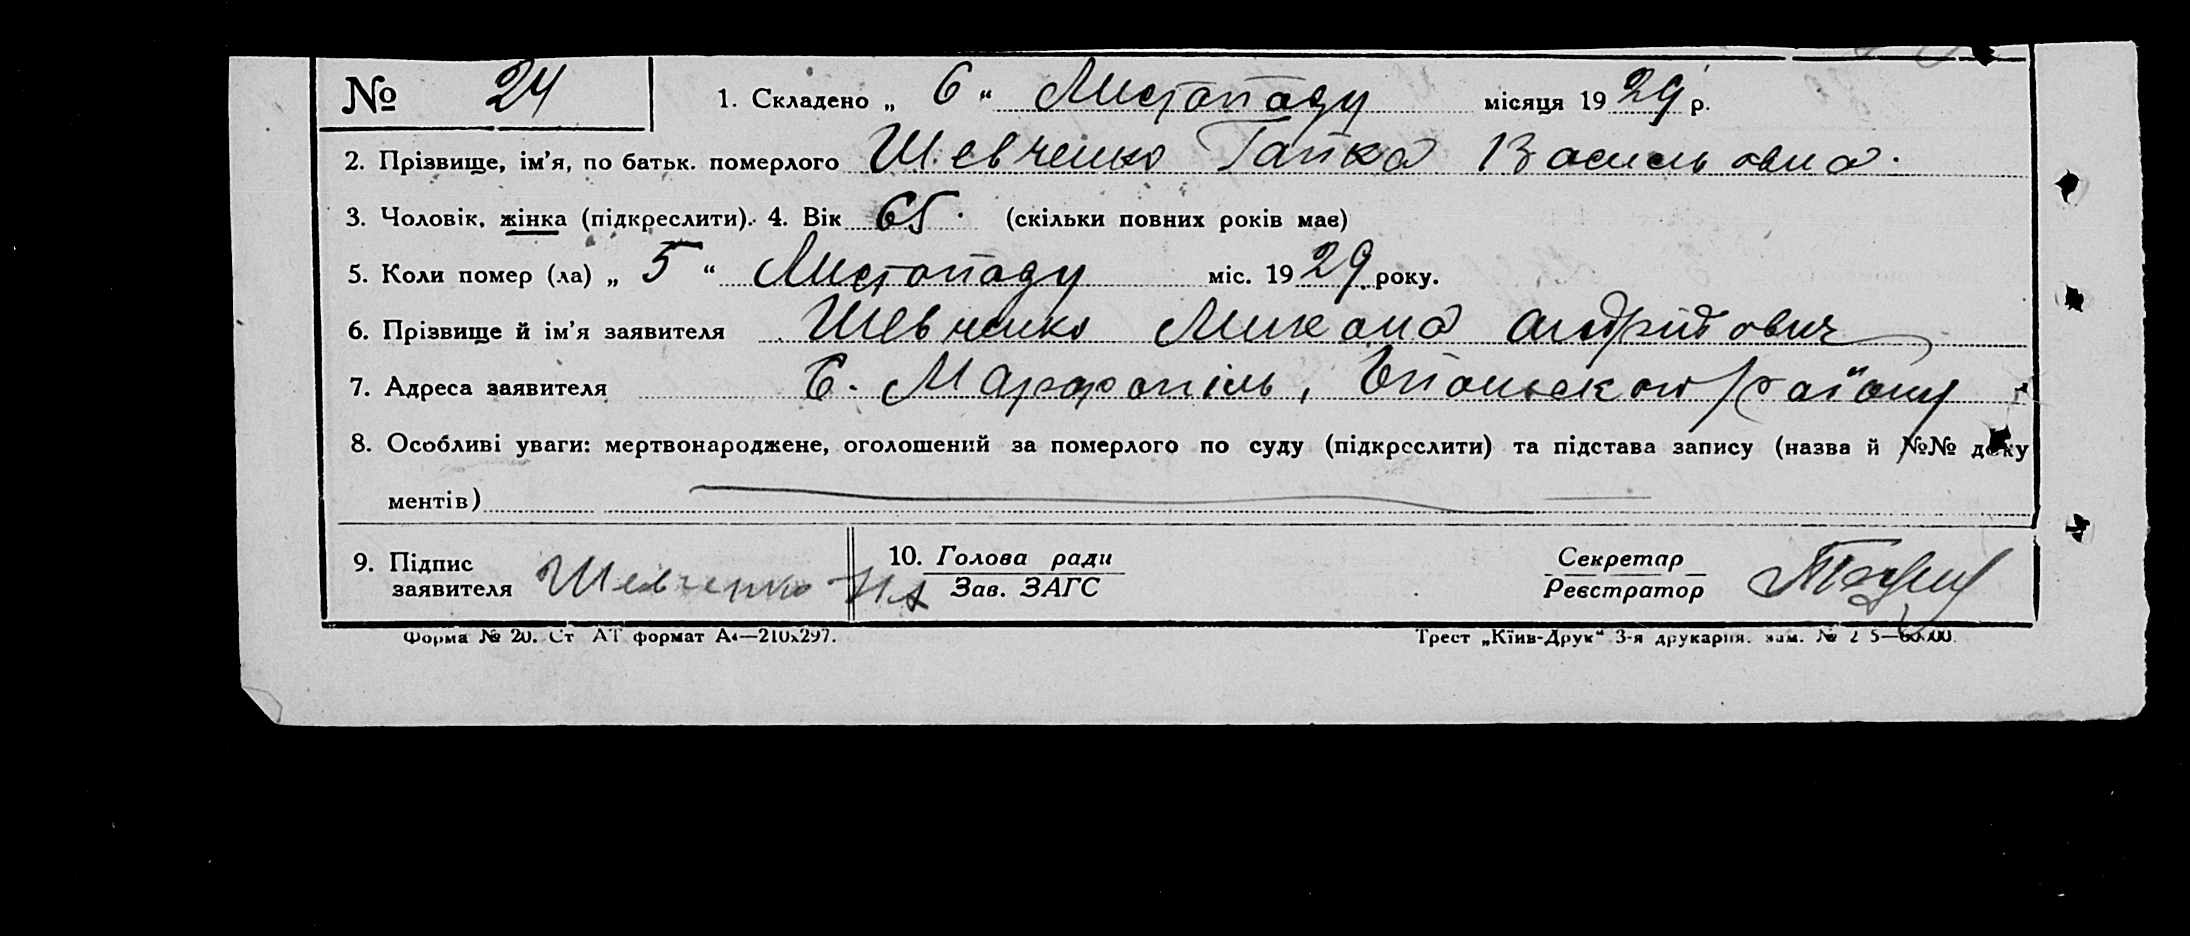 № 24 1. Складено „ 6 “ Листопаду місяця 1929 р.
2. Прізвище, ім’я, по батьк. померлого Шевченко Гапка Васильовна.
3. Чоловік, жінка (підкреслити). 4. Вік 65. (скільки повних років має)
5. Коли помер (ла) „ 5 “ Листопаду міс. 1929 року.
6. Прізвище й ім’я заявителя Шевченко Михайло Андрійович
7. Адреса заявителя С. Марфопіль, району
8. Особливі уваги: мертвонароджене, оголошений за померлого по суду (підкреслити) та підстава запису (назва й №№ доку
ментів)
9. Підпис заявителя Шевченко 10. Голова ради Секретар
Зав. ЗАГС Реєстратор
Форма № 20. Ст АТ формат А4—210х297. Трест „Київ-Друк“ 3-я друкарня. зам. №